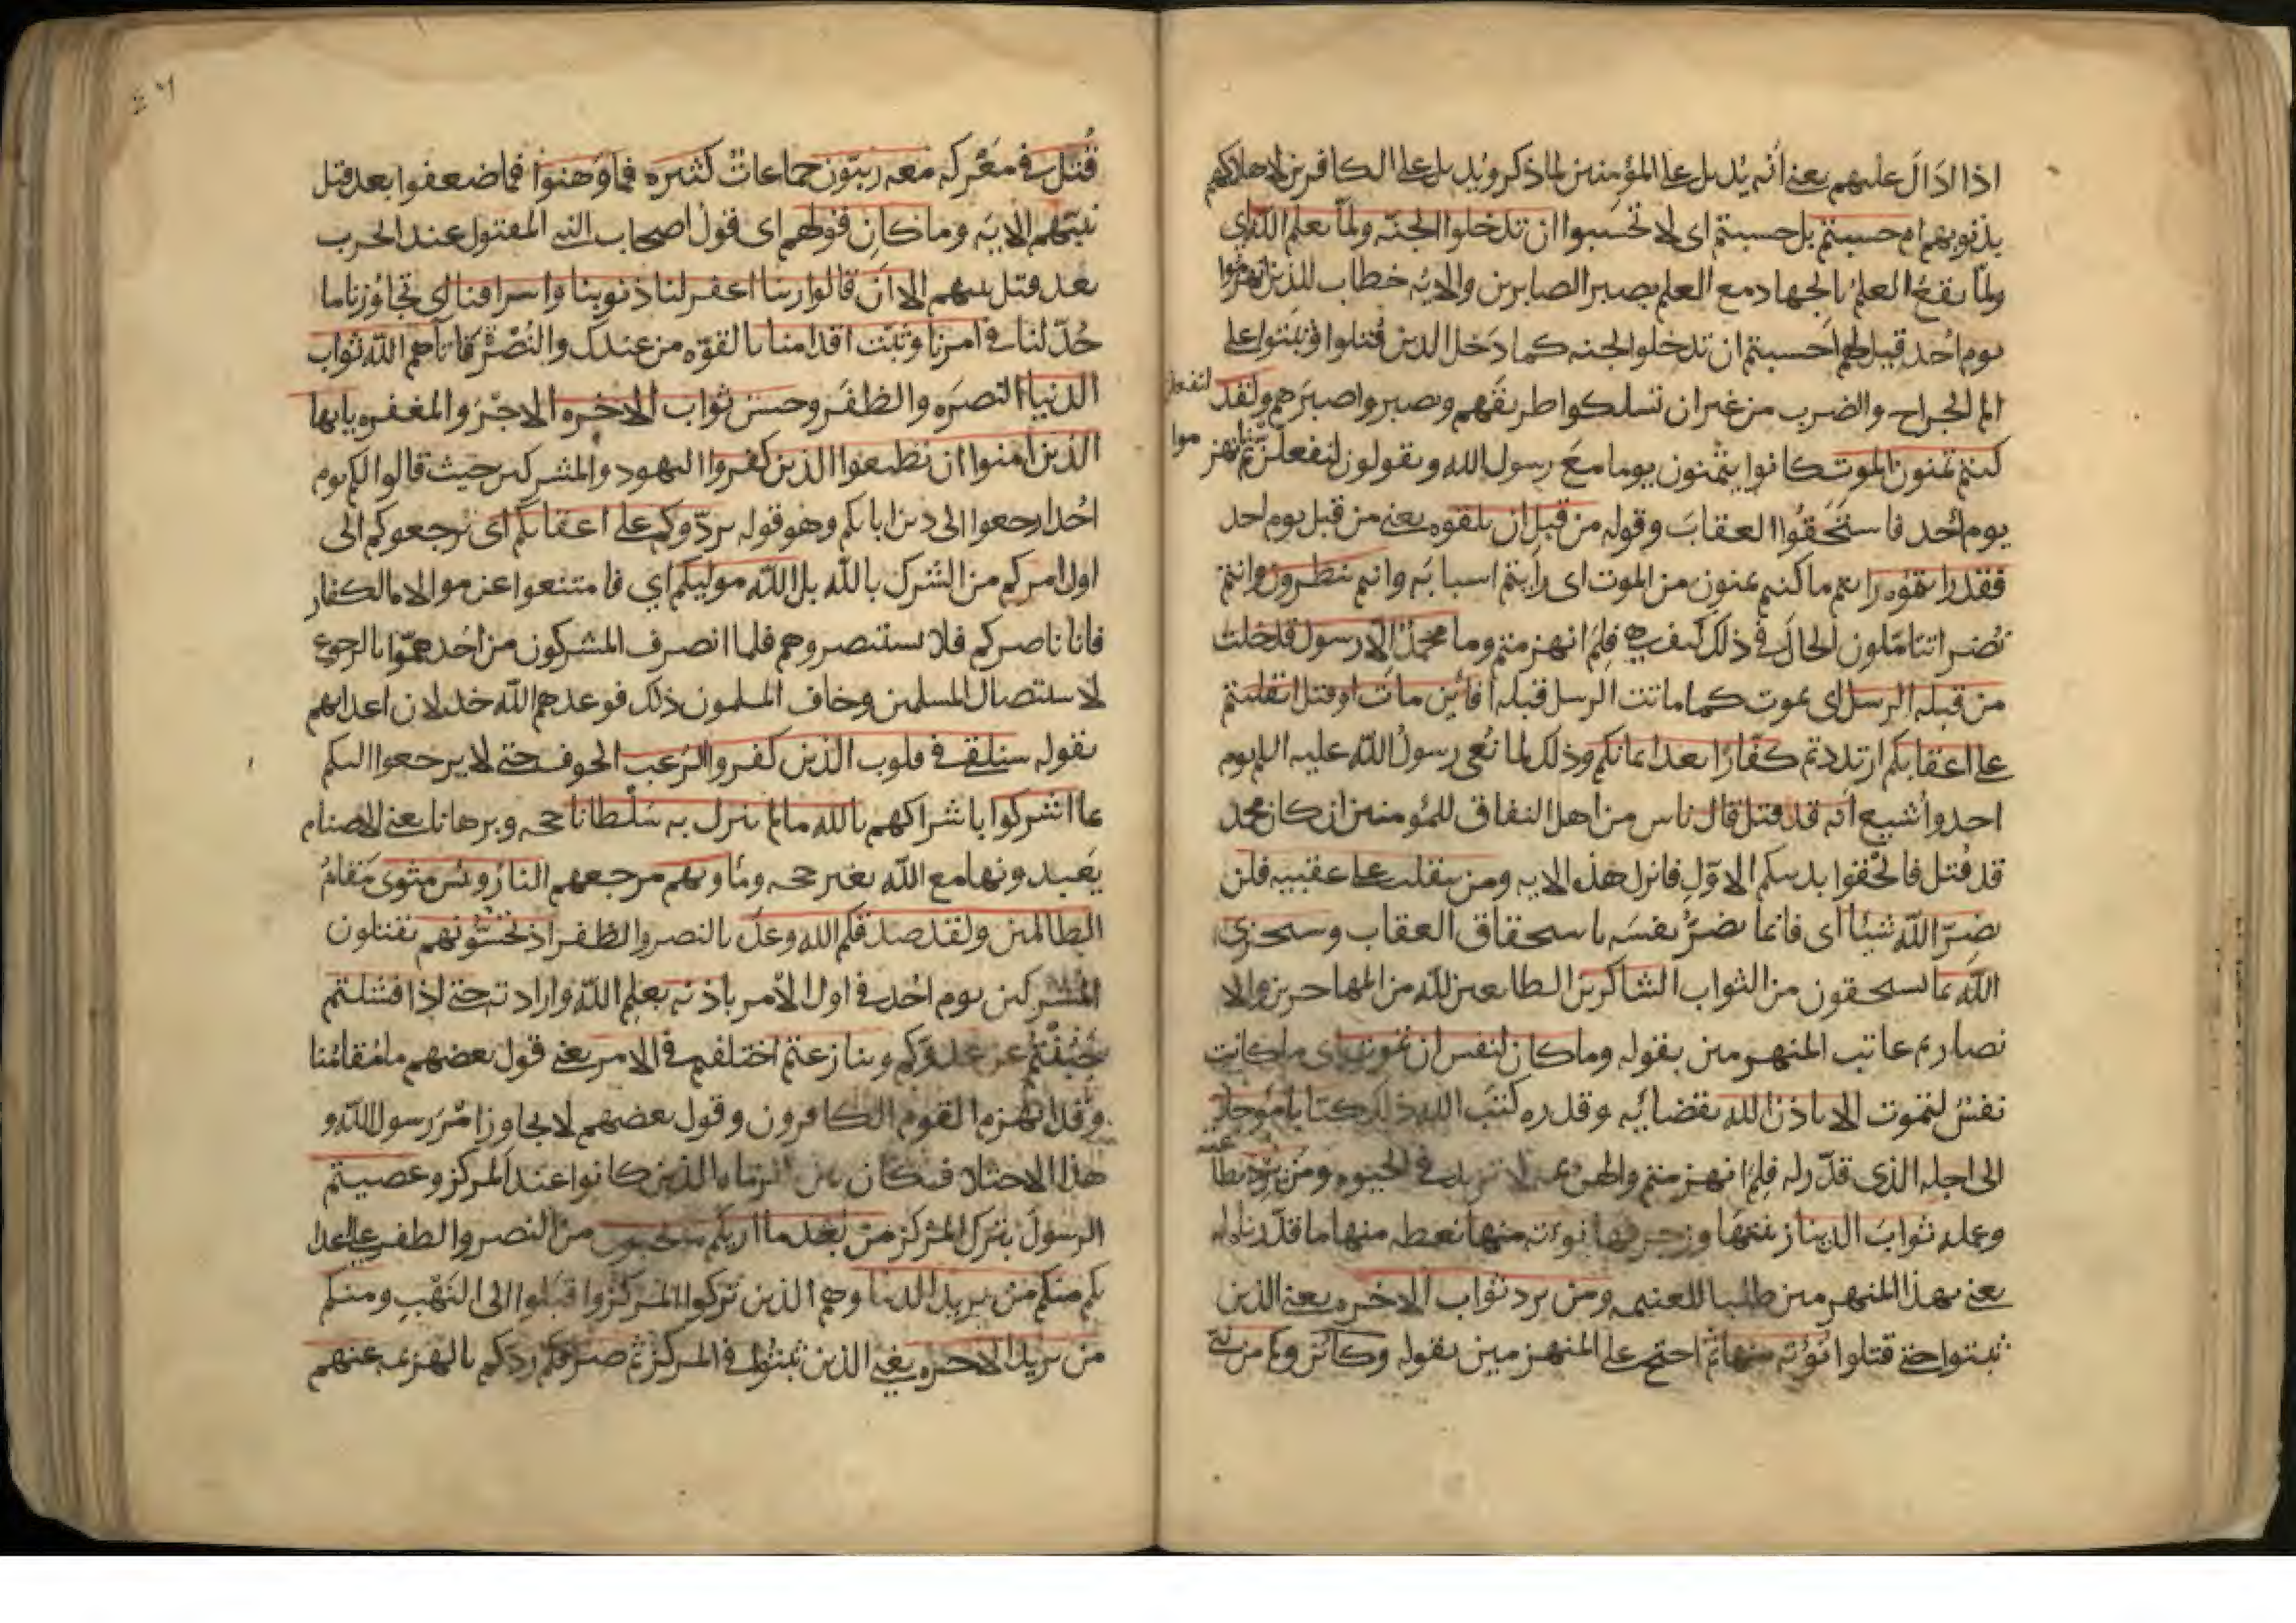 اذا ادال عليهم يعني أنه يديل على المؤمنين لما ذكر ويديل على الكافرين لاهلاكهم
بذنوبهم ام حسبتم بل حسبتم اى لا تحسبوا ان تدخلوا الجنة ولما يعلم الله اي
ولما يقع العلم بالجهاد مع العلم بصبر الصابرين والاية خطاب للذين انهزموا
يوم احد قيل لهم احسبتم ان تدخلوا الجنه كما دخل الذين قتلوا وثبتوا على
الم الجراح والضرب من غير ان تسلكوا طريقهم وتصبروا صبرهم ولقد
كنتم تمنون الموت كانوا يتمنون يوما مع رسول الله ويقولون لنفعلن ثم انهز موا
يوم أحد فاستحقوا العقاب وقوله من قبل ان تلقوه يعني من قبل يوم احد
فقد رايتموه رايتم ما كنتم تمنون من الموت اى رأيتم اسبابه وانتم تنظرون وانتم
بصراء تتاملون الحال في ذلك كيف هي فلم انهزمتم وما محمد الا رسول قد خلت
من قبله الرسل اى يموت كما ماتت الرسل قبله أفائن مات او قتل انقلبتم
على اعقابكم ارتددتم كفارا بعد ايمانكم وذلك لما نعى رسول الله عليه السلم يوم
احد وأشيع أنه قد قتل قال ناس من اهل النفاق للمؤمنين ان كان محمد
قد قتل فالحقوا بدينكم الاول فانزل هذه الاية ومن ينقلب على عقبيه فلن
يضر الله شيئا اى فانما يضر نفسه باستحقاق العقاب وسيجزي
الله بما يستحقون من الثواب الشاكرين الطايعين لله من المهاجرين والا
نصار ثم عاتب المنهزمين بقوله وما كان لنفس ان تموت اى ما كانت
نفس لتموت الا باذن الله بقضائه وقدره كتب الله ذلك كتابا مؤجلا
الى اجله الذى قدر له فلم انهزمتم والهزيمة لا تزيد في الحيوه ومن يرد بطاعته
وعمله ثواب الدنيا زينتها وزخرفها نؤته منها نعطه منها ما قدرناه له
يعني بهذا المنهزمين طلبا للغنيمه ومن يرد ثواب الاخره يعني الذين
ثبتوا حتى قتلوا نؤته منها ثم احتج على المنهزمين بقوله وكائن وكم من نبي
قتل في معركه معه ربيون جماعات كثيره فما وهنوا فما ضعفوا بعد قتل
نبيهم الاية وما كان قولهم اى قول اصحاب النبي المقتول عند الحرب
بعد قتل نبيهم الا ان قالوا ربنا اغفر لنا ذنوبنا واسرافنا اى تجاوزنا ما
حد لنا في امرنا وثبت اقدامنا بالقوه من عندك والنصر فاتاهم الله ثواب
الدنيا النصره والظفر وحسن ثواب الاخره الاجر والمغفره يايها
الذين امنوا ان تطيعوا الذين كفروا اليهود والمشركين حيث قالوا لكم يوم
احد ارجعوا الى دين ابايكم وهو قوله يردوكم على اعقابكم اى يرجعوكم الى
اول امركم من الشرك بالله بل الله موليكم اي فامتنعوا عن موالاه الكفار
فانا ناصركم فلا تستنصروهم فلما انصرف المشركون من احد هموا بالرجوع
لاستصال المسلمين وخاف المسلمون ذلك فوعدهم الله خذلان اعدايهم
بقوله سنلقي في قلوب الذين كفروا الرعب الخوف حتى لا يرجعوا اليكم
بما اشركوا باشراكهم بالله ما لم ينزل به سلطانا حجه وبرهانا يعني الاصنام
يعبدونها مع الله بغير حجه ومأويهم مرجعهم النار وبئس مثوى مقام
الظالمين ولقد صدقكم الله وعده بالنصر والظفر اذ تحسونهم تقتلون
المشركين يوم احد في اول الامر باذنه بعلم الله وارادته حتى اذا فشلتم
جبنتم عن عدوكم وتنازعتم اختلفتم في الامر يعني قول بعضهم ما مقامنا
وقد انهزم القوم الكافرون وقول بعضهم لا نجاوز امر رسول الله و
هذا الاختلاف كان بين الرماه الذين كانوا عند المركز وعصيتم
الرسول بترك المركز من بعد ما اريكم ما تحبون من النصر والظفر على اعدا
يكم منكم من يريد الدنيا وهم الذين تركوا المركز واقبلوا الى النهب ومنكم
من يريد الاخره يعني الذين ثبتوا في المركز ثم صرفكم ردكم بالهزيمه عنهم